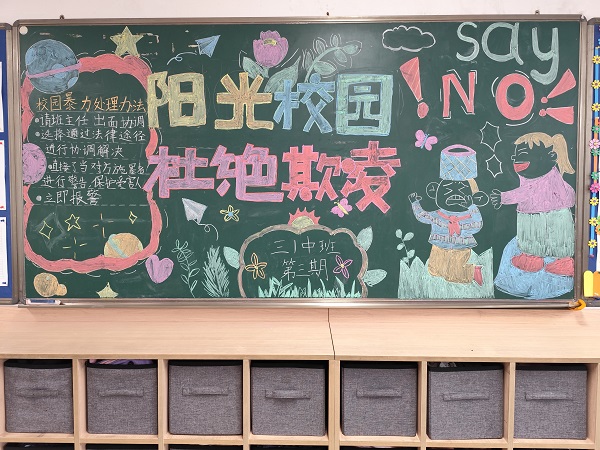 校园暴力处理办法
请班主任出面协调
选择通过法律途径
进行协调解决
直接了当对方施暴者
进行警告保护受害人
立即报警
阳光校园
杜绝欺凌
三1中班
第三期
say
NO!
!